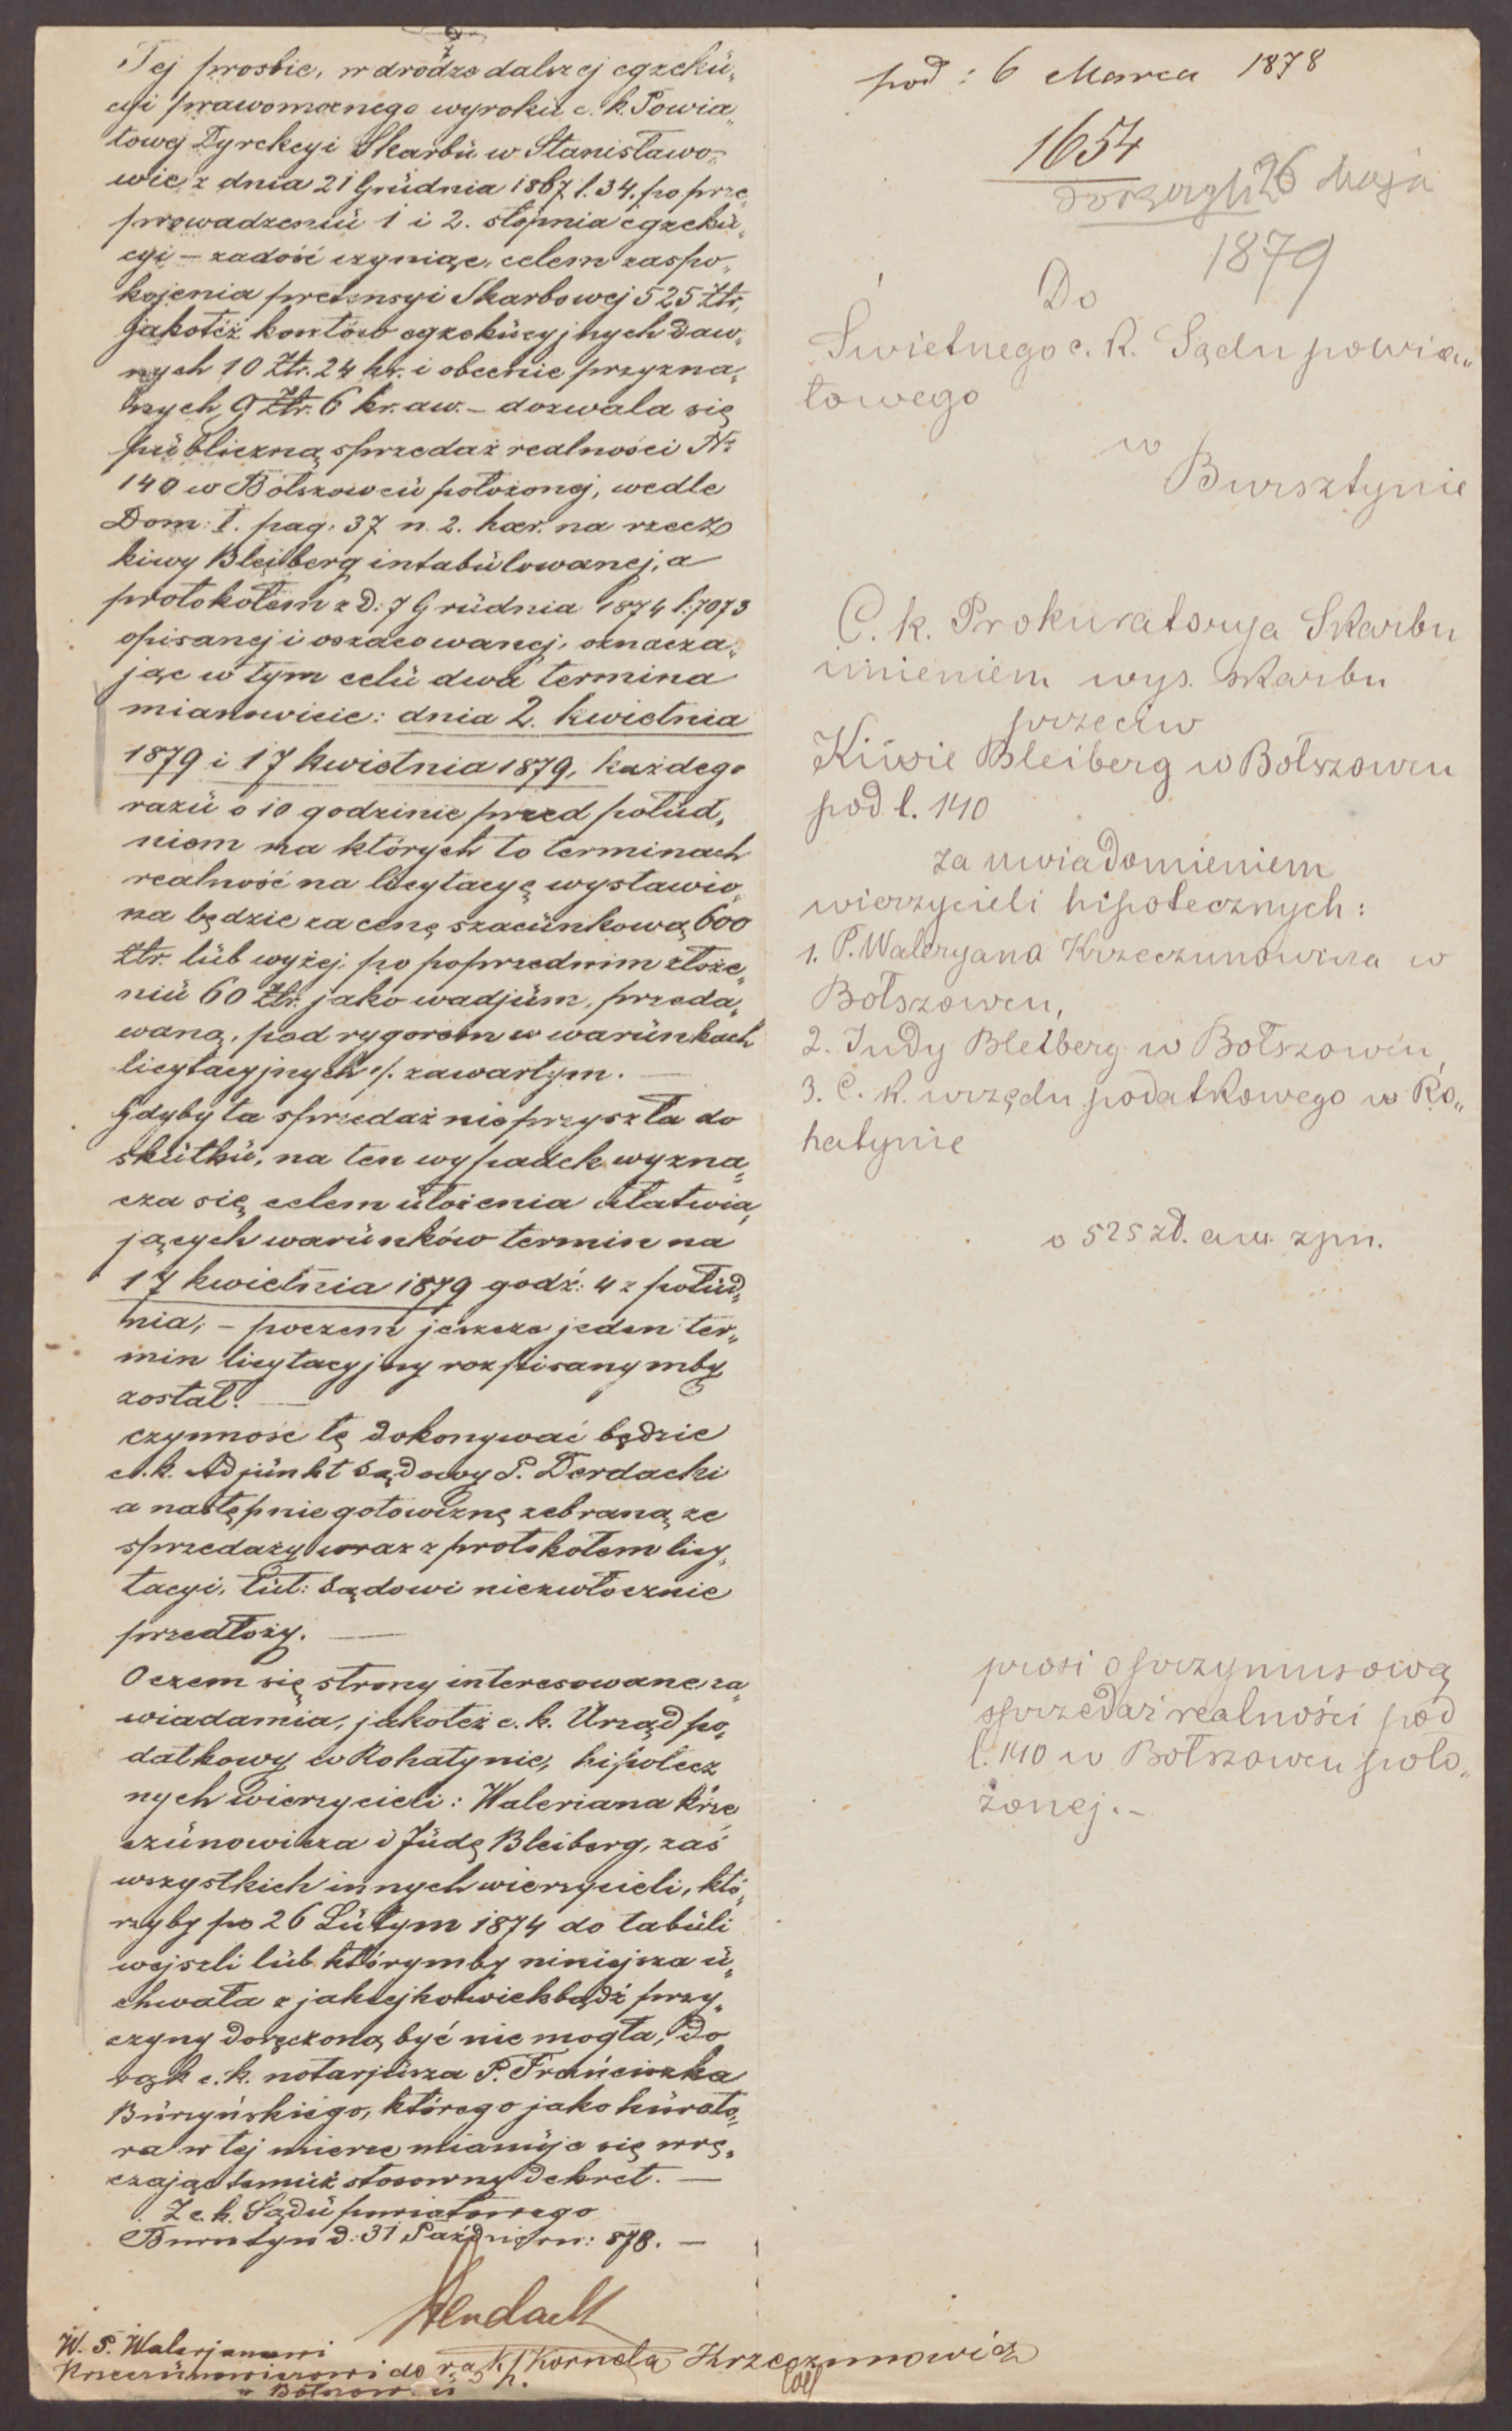 Tej prośbie, w drodze dalszej egzeku„
cyi prawomocnego wyroku c. k. Powia„
towej Dyrekcyi Skarbu w Stanisławo„
wie z dnia 21 Grudnia 1867 l. 34. po prze„
prowadzeniu 1 i 2. stopnia egzeku„
cyi – zadość czyniąc, celem zaspo„
kojenia pretensyi Skarbowej 525 Ztr,
jakotéż kosztów egzekucyjnych daw„
nych 10 Ztr. 24 kr. i obecnie przyzna„
nych 9 Ztr. 6 kr. aw. – dozwala się
publiczną sprzedaż realności Nr
140 w Bołszowcu położonej, wedle
Dom: I. pag: 37 n. 2. haer. na rzecz
Kiwy Bleiberg intabulowanej, a
protokołem z d: 7 Grudnia 1874 l: 7073
opisanej i oszacowanej, oznacza„
jąc w tym celu dwa termina
mianowicie: dnia 2. kwietnia
1879 i 17 kwietnia 1879, każdego
razu o 10 godzinie przed połud„
niem na których to terminach
realność na licytacyę wystawio„
na będzie za cenę szacunkową 600
ztr. lub wyżej po poprzednim złoże„
niu 60 Ztr. jako wadjum, przeda„
waną, pod rygorem w warunkach
licytacyjnych ./. zawartym. —
Gdyby ta sprzedaż nie przyszła do
skutku, na ten wypadek wyzna„
cza się celem ułożenia ułatwia„
jących warunków termin na
17 kwietnia 1879 godź: 4 z połud„
nia, – poczem jeszcze jeden ter„
min licytacyjny rozpisanymby
został. —
czynność tę dokonywać będzie
c. k. Adjunkt Sądowy P. Derdacki
a następnie gotowiznę zebraną ze
sprzedaży wraz z protokołem licy„
tacyi, tut: Sądowi niezwłocznie
przedłoży. —
O czem się strony interesowane za„
wiadamia, jakoteż c. k. Urząd po„
datkowy w Rohatynie, hipotecz
nych wierzycieli: Waleriana Krze
czunowicza i Judę Bleiberg, zaś
wszystkich innych wierzycieli, któ„
rzyby po 26 Lutym 1874 do tabuli
wejszli lub którymby niniejsza u„
chwała z jakiejkolwiekbądź przy„
czyny doręczoną być nie mogła, do
rąk c. k. notarjusza P. Franciszka
Burzyńskiego, którego jako kurato„
ra w tej mierze mianuje się wrę„
czając temuż stosowny dekret. —
Z c. k. Sądu powiatowego
Bursztyn d: 31 Październ: 878. —
W. P. Walerjanowi
Krzeczunowiczowi do rąk P. Kornela Krzeczunowicz
w Bołszowcu
pod: 6 Marca 1878
1654
26 Maja
1879
Do
Świetnego c. k. Sądu powia„
towego
w
Bursztynie
C. k. Prokuratorya Skarbu
imieniem wys. skarbu
przeciw
Kiwie Bleiberg w Bołszowcu
pod l. 140
za uwiadomieniem
wierzycieli hipotecznych:
1. P. Waleryana Krzeczunowicza w
Bołszowcu,
2. Judy Bleiberg w Bołszowcu,
3. C. k. urzędu podatkowego w Ro„
hatynie
o 525 zł. aw. zpn.
prosi o przymusową
sprzedaż realności pod
l. 140 w Bołszowcu poło„
żonej. –